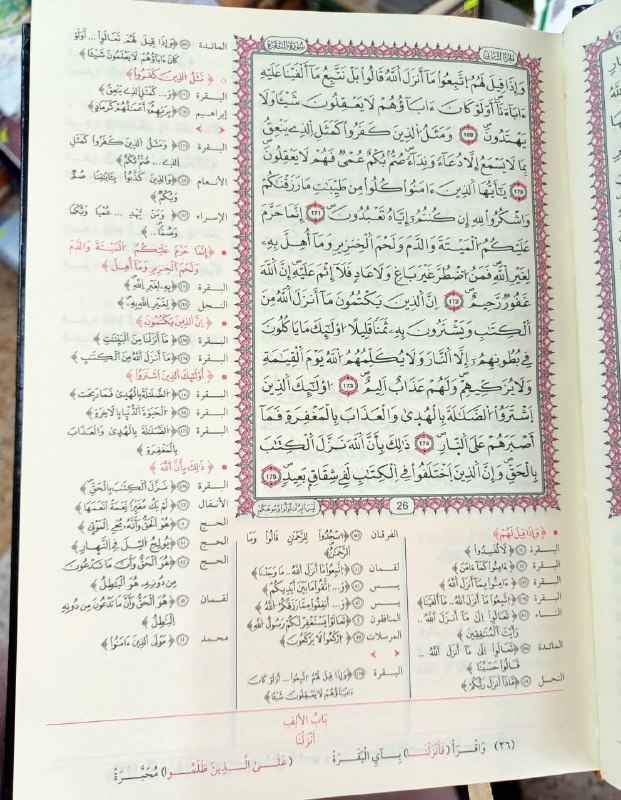 الجزء الثاني سورة البقرة
وَإِذَا قِيلَ لَهُمُ اُتَّبِعُوا مَآ أَنزَلَ اَللَّهُ قَالُوا بَلْ نَتَّبِعُ مَآ أَلْفَيْنَا عَلَيْهِ
ءَابَآءَنَآ أَوَلَوْ كَانَ ءَابَآؤُهُمْ لَا يَعْقِلُونَ شَيْـًٔا وَلَا
يَهْتَدُونَ 169 وَمَثَلُ اُلذِينَ كَفَرُوا كَمَثَلِ اِلذِے يَنْعِقُ
بِمَا لَا يَسْمَعُ إِلَّا دُعَآءً وَنِدَآءً صُمُّۢ بُكْمٌ عُمْيٌ فَهُمْ لَا يَعْقِلُونَ
170 يَٰٓأَيُّهَا اَلذِينَ ءَامَنُوا كُلُوا مِن طَيِّبَٰتِ مَا رَزَقْنَٰكُمْ
وَاشْكُرُوا لِلهِ إِن كُنتُمُۥٓ إِيَّاهُ تَعْبُدُونَ 171 إِنَّمَا حَرَّمَ
عَلَيْكُمُ اُلْمَيْتَةَ وَالدَّمَ وَلَحْمَ اَلْخِنزِيرِ وَمَآ أُهِلَّ بِهِۦ
لِغَيْرِ اِللَّهِ فَمَنُ اُضْطُرَّ غَيْرَ بَاغٍ وَلَا عَادٍ فَلَآ إِثْمَ عَلَيْهِ إِنَّ اَللَّهَ
غَفُورٌ رَّحِيمٌ 172 اِنَّ اَلذِينَ يَكْتُمُونَ مَآ أَنزَلَ اَللَّهُ مِنَ
اَلْكِتَٰبِ وَيَشْتَرُونَ بِهِۦ ثَمَنًا قَلِيلًا اُوْلَٰٓئِكَ مَا يَاكُلُونَ
فِے بُطُونِهِمُۥٓ إِلَّا اَلنَّارَ وَلَا يُكَلِّمُهُمُ اُللَّهُ يَوْمَ اَلْقِيَٰمَةِ
وَلَا يُزَكِّيهِمْ وَلَهُمْ عَذَابٌ اَلِيمٌ 173 اُوْلَٰٓئِكَ اَلذِينَ
اَشْتَرَوُا اُلضَّلَٰلَةَ بِالْهُدَىٰ وَالْعَذَابَ بِالْمَغْفِرَةِ فَمَآ
أَصْبَرَهُمْ عَلَى اَلنَّارِ 174 ذَٰلِكَ بِأَنَّ اَللَّهَ نَزَّلَ اَلْكِتَٰبَ
بِالْحَقِّ وَإِنَّ اَلذِينَ اَخْتَلَفُوا فِے اِلْكِتَٰبِ لَفِے شِقَاقٍ بَعِيدٍ 175
26
لَّيْسَ اَلْبِرُّ أَن تُوَلُّوا وُجُوهَكُمْ
المائدة ﴿وَإِذَا قِيلَ لَهُمْ تَعَالَوْا ... أَوَلَوْ
كَانَ ءَابَآؤُهُمْ لَا يَعْلَمُونَ شَيْـًٔا﴾
﴿مَثَلُ اُلذِينَ كَفَرُوا﴾
البقرة ﴿وَ... كَمَثَلِ اِلذِے يَنْعِقُ﴾
إبراهيم ﴿بِرَبِّهِمُۥٓ أَعْمَٰلُهُمْ كَرَمَادٍ﴾
البقرة ﴿وَمَثَلُ اُلذِينَ كَفَرُوا كَمَثَلِ
اِلذِے ... صُمُّۢ بُكْمٌ﴾
الأنعام ﴿وَالذِينَ كَذَّبُوا بِـَٔايَٰتِنَا صُمٌّ
وَبُكْمٌ﴾
الإسراء ﴿وَمَنْ يَّهْدِ ... عُمْيًا وَبُكْمًا
وَصُمًّا ...﴾
﴿إِنَّمَا حَرَّمَ عَلَيْكُمُ اُلْمَيْتَةَ وَالدَّمَ
وَلَحْمَ اَلْخِنزِيرِ وَمَآ أُهِلَّ﴾
البقرة ﴿بِهِۦ لِغَيْرِ اِللَّهِ﴾
النحل ﴿لِغَيْرِ اِللَّهِ بِهِۦ﴾
﴿إِنَّ اَلذِينَ يَكْتُمُونَ﴾
البقرة ﴿مَآ أَنزَلْنَا مِنَ اَلْبَيِّنَٰتِ﴾
البقرة ﴿مَآ أَنزَلَ اَللَّهُ مِنَ اَلْكِتَٰبِ﴾
﴿أُوْلَٰٓئِكَ اَلذِينَ اَشْتَرَوُا﴾
البقرة ﴿اُلضَّلَٰلَةَ بِالْهُدَىٰ فَمَا رَبِحَت﴾
البقرة ﴿اُلْحَيَوٰةَ اَلدُّنْيَا بِالَاخِرَةِ﴾
البقرة ﴿اُلضَّلَٰلَةَ بِالْهُدَىٰ وَالْعَذَابَ
بِالْمَغْفِرَةِ﴾
﴿ذَٰلِكَ بِأَنَّ اَللَّهَ﴾
البقرة ﴿نَزَّلَ اَلْكِتَٰبَ بِالْحَقِّ﴾
الأنفال ﴿لَمْ يَكُ مُغَيِّرًا نِّعْمَةً اَنْعَمَهَا﴾
الحج ﴿هُوَ اَلْحَقُّ وَأَنَّهُۥ يُحْيِ اِلْمَوْتَىٰ﴾
الحج ﴿يُولِجُ اُلَّيْلَ فِے اِلنَّهَارِ﴾
الحج ﴿هُوَ اَلْحَقُّ وَأَنَّ مَا تَدْعُونَ
مِن دُونِهِۦ هُوَ اَلْبَٰطِلُ﴾
لقمان ﴿هُوَ اَلْحَقُّ وَأَنَّ مَا تَدْعُونَ مِن دُونِهِ
اِلْبَٰطِلُ﴾
محمد ﴿مَوْلَى اَلذِينَ ءَامَنُوا﴾
﴿وَإِذَا قِيلَ لَهُمْ﴾
البقرة ﴿لَا تُفْسِدُوا﴾
البقرة ﴿ءَامِنُوا كَمَآ ءَامَنَ﴾
البقرة ﴿ءَامِنُوا بِمَآ أَنزَلَ اَللَّهُ﴾
البقرة ﴿اُتَّبِعُوا مَآ أَنزَلَ اَللَّهُ .. مَآ أَلْفَيْنَا﴾
النساء ﴿تَعَالَوِا اِلَىٰ مَآ أَنزَلَ اَللَّهُ ..
رَأَيْتَ اَلْمُنَٰفِقِينَ﴾
المائدة ﴿تَعَالَوِا اِلَىٰ مَآ أَنزَلَ اَللَّهُ ..
قَالُوا حَسْبُنَا﴾
النحل ﴿مَّاذَآ أَنزَلَ رَبُّكُمْ﴾
الفرقان ﴿اُسْجُدُوا لِلرَّحْمَٰنِ قَالُوا وَمَا
اَلرَّحْمَٰنُ﴾
لقمان ﴿اُتَّبِعُوا مَآ أَنزَلَ اَللَّهُ .. مَا وَجَدْنَا﴾
يس ﴿وَ... اُتَّقُوا مَا بَيْنَ أَيْدِيكُمْ﴾
يس ﴿وَ... أَنفِقُوا مِمَّا رَزَقَكُمُ اُللَّهُ﴾
المنافقون ﴿تَعَالَوْا يَسْتَغْفِرْ لَكُمْ رَسُولُ اُللَّهِ﴾
المرسلات ﴿اُرْكَعُوا لَا يَرْكَعُونَ﴾
البقرة ﴿وَإِذَا قِيلَ لَهُمُ اُتَّبِعُوا ... أَوَلَوْ كَانَ
ءَابَآؤُهُمْ لَا يَعْقِلُونَ شَيْـًٔا﴾
بَابُ الأَلِفِ
أَنْزَلْنَا
(٢٦) وَاقْرَأْ (فَأَنْزَلْنَا) بِـآيِ الْبَقَرَةْ (عَلَى الَّذِينَ ظَلَمُوا) مُحَبَّرَةْ